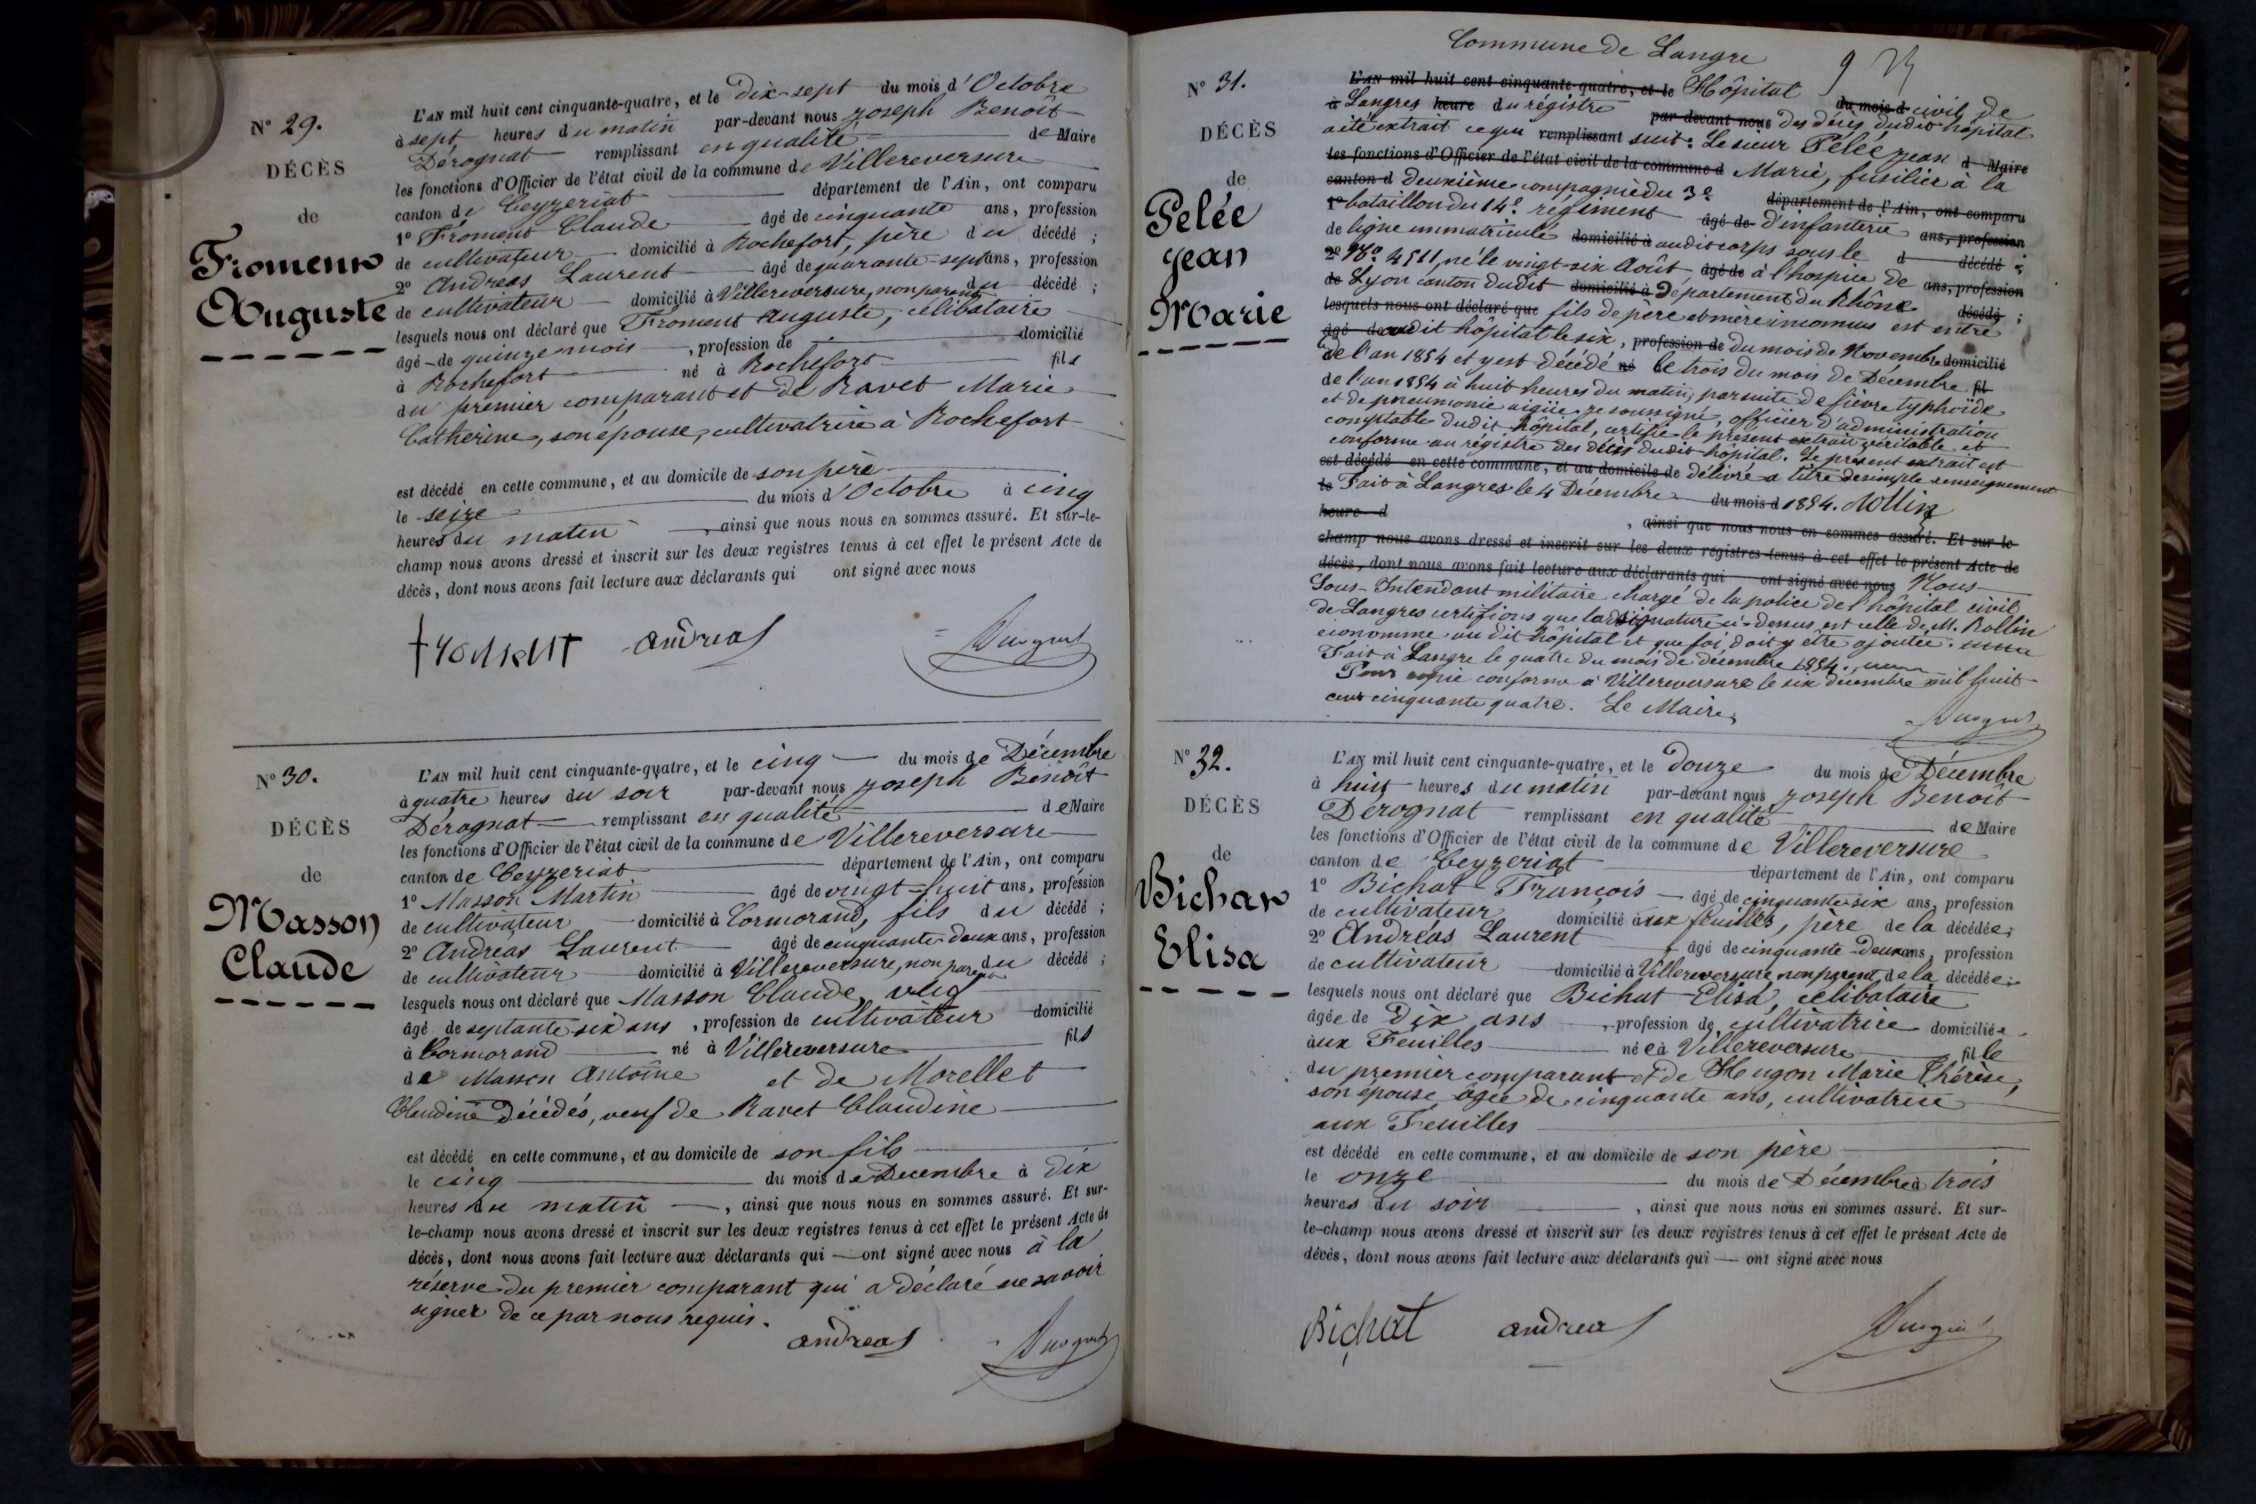 N° 29.
DÉCÈS
de
Froment
Auguste
L'AN mil huit cent cinquante-quatre, et le Dix-sept du mois d'Octobre
à sept heures du matin par-devant nous Joseph Benoît
Dérognat remplissant en qualité de Maire
les fonctions d'Officier de l'état civil de la commune de Villereversure
canton de Ceyzeriat département de l'Ain, ont comparu
1° Froment Claude âgé de cinquante ans, profession
de cultivateur domicilié à Rochefort, père du décédé ;
2° Andreas Laurent âgé de quarante-sept ans, profession
de cultivateur domicilié à Villereversure, non parent du décédé ;
lesquels nous ont déclaré que Froment Auguste, célibataire
âgé de quinze mois, profession de domicilié
à Rochefort né à Rochefort fils
du premier comparant et de Ravet Marie
Catherine, son épouse, cultivatrice à Rochefort
est décédé en cette commune, et au domicile de son père
le seize du mois d'Octobre à cinq
heures du matin, ainsi que nous nous en sommes assuré. Et sur-le-
champ nous avons dressé et inscrit sur les deux registres tenus à cet effet le présent Acte de
décès, dont nous avons fait lecture aux déclarants qui ont signé avec nous
froment andreas
N° 30.
DÉCÈS
de
Masson
Claude
L'AN mil huit cent cinquante-quatre, et le cinq du mois de Décembre
à quatre heures du soir par-devant nous Joseph Benoît
Dérognat remplissant en qualité de Maire
les fonctions d'Officier de l'état civil de la commune de Villereversure
canton de Ceyzeriat département de l'Ain, ont comparu
1° Masson Martin âgé de vingt-huit ans, profession
de cultivateur domicilié à Cormorand, fils du décédé ;
2° Andreas Laurent âgé de cinquante-deux ans, profession
de cultivateur domicilié à Villereversure, non parent du décédé ;
lesquels nous ont déclaré que Masson Claude, veuf
âgé de septante six ans, profession de cultivateur domicilié
à Cormorand né à Villereversure fils
de Masson Antoine et de Morellet
Claudine Décédés, veuf de Ravet Claudine
est décédé en cette commune, et au domicile de son fils
le cinq du mois de Decembre à dix
heures du matin, ainsi que nous nous en sommes assuré. Et sur-
le-champ nous avons dressé et inscrit sur les deux registres tenus à cet effet le présent Acte de
décès, dont nous avons fait lecture aux déclarants qui ont signé avec nous à la
réserve du premier comparant qui a déclaré ne savoir
signer de ce par nous requis.
andreas
Commune de Langre
N° 31.
DÉCÈS
de
Pelée
Jean
Marie
L'AN mil huit cent cinquante-quatre, et le Hôpital du mois d civil de
à Langres heure du régistre par-devant nous des décès dudit hôpital
a été extrait ce qui remplissant suit : Le sieur Pelée Jean d Maire
les fonctions d'Officier de l'état civil de la commune d Marie, fusilier à la
canton d deuxième compagnie du 3e département de l'Ain, ont comparu
1° bataillon du 14e régiment âgé de D'infanterie ans, profession
de ligne immatriculé domicilié à audit corps sous le d décédé ;
2° No 4511, né le vingt-six Août âgé de à l'hospice de ans, profession
de Lyon canton dudit domicilié à Département du Rhône décédé ;
lesquels nous ont déclaré que fils de père et mère inconnus est entré
âgé de audit hôpital le six, profession de du mois de Novembre domicilié
à de l'an 1854 et y est décédé né le trois du mois de Décembre fil
de l'an 1854 à huit heures du matin, par suite de fièvre typhoïde
et de pneumonie aigüe. Je soussigné, officier d'administration
comptable dudit hôpital, certifie le présent extrait véritable et
conforme au régistre des décès dudit hôpital. Le présent extrait est
est décédé en cette commune, et au domicile de délivré a titre de simple renseignement
le Fait à Langres le 4 Décembre du mois d 1854. Rollin
heure d , ainsi que nous nous en sommes assuré. Et sur-le-
champ nous avons dressé et inscrit sur les deux registres tenus à cet effet le présent Acte de
décès, dont nous avons fait lecture aux déclarants qui ont signé avec nous Nous
Sous-Intendant militaire chargé de la police de l'hôpital civil
de Langres certifions que la signature ci-dessus est celle de M. Rollin
économme au dit hôpital et que foi doit y être ajoutée.
Fait à Langre le quatre du mois de décembre 1854.
Pour copie conforme à Villereversure le six décembre mil huit
cent cinquante quatre. Le Maire,
N° 32.
DÉCÈS
de
Bichat
Elisa
L'AN mil huit cent cinquante-quatre, et le Douze du mois de Décembre
à huit heures du matin par-devant nous Joseph Benoît
Dérognat remplissant en qualité de Maire
les fonctions d'Officier de l'état civil de la commune de Villereversure
canton de Ceyzeriat département de l'Ain, ont comparu
1° Bichat François âgé de cinquante-six ans, profession
de cultivateur domicilié aux feuilles, père de la décédée ;
2° Andréas Laurent âgé de cinquante-Deux ans, profession
de cultivateur domicilié à Villereversure, non parent, de la décédée ;
lesquels nous ont déclaré que Bichat Elisa, célibataire
âgée de Dix ans, profession de cultivatrice domiciliée
aux Feuilles née à Villereversure fille
du premier comparant et de Hugon Marie Thérèse,
son épouse âgée de cinquante ans, cultivatrice
aux Feuilles
est décédé en cette commune, et au domicile de son père
le onze du mois de Décembre à trois
heures du soir, ainsi que nous nous en sommes assuré. Et sur-
le-champ nous avons dressé et inscrit sur les deux registres tenus à cet effet le présent Acte de
décès, dont nous avons fait lecture aux déclarants qui ont signé avec nous
Bichat andreas